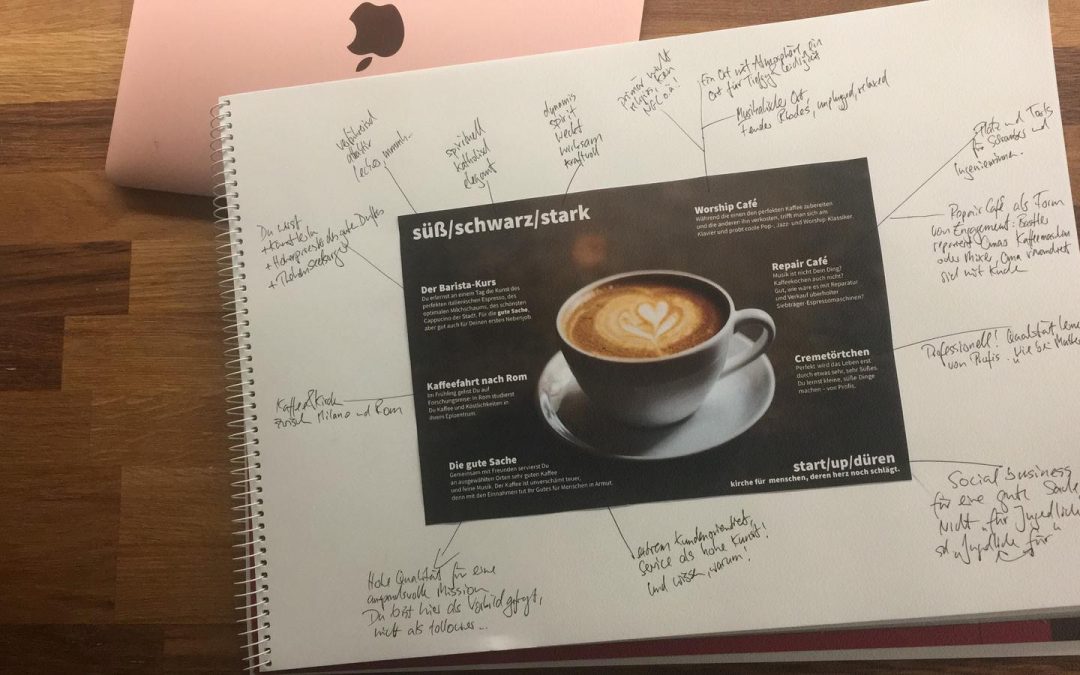 verführerisch
attraktiv
lecker, mmmh...
spirituell
katholisch
elegant
dynamis
spirit
weckt
wirksam
kraftvoll
primär nicht
Ein Ort mit Atmosphäre, ein
Ort für
Musikalischer Ort
Fender Rhodes, unplugged, relaxed
Plätze und Tools
für Schrauber und
Ingenieurinnen.
Du wirst
+ Künstler/in
+ Hohepriester des guten Duftes
+
süß/schwarz/stark
Worship Café
Während die einen den perfekten Kaffee zubereiten
und die anderen ihn verkosten, trifft man sich am
Klavier und probt coole Pop-, Jazz- und Worship Klassiker.
Der Barista-Kurs
Du erlernst an einem Tag die Kunst des
perfekten italienischen Espresso, des
optimalen Milchschaums, des schönsten
Cappuccino der Stadt. Für die gute Sache,
aber gut auch für Deinen ersten Nebenjob
Repair Café
Musik ist nicht Dein Ding?
Kaffeekochen auch nicht?
Gut, wie wäre es mit Reparatur
und Verkauf überholter
Siebträger-Espressomaschinen?
Repair Café als Form
von Engagement: Bastler
repariert Omas Kaffeemaschine
oder Mixer, Oma revanchiert
sich mit Kuchen
Kaffeefahrt nach Rom
Im Frühling gehst Du auf
Forschungsreise: in Rom studierst
Du Kaffee und Köstlichkeiten in
ihrem Epizentrum.
Cremetörtchen
Perfekt wird das Leben erst
durch etwas sehr, sehr Süßes.
Du lernst kleine, süße Dinge
machen – von Profis.
Professionell! Qualität, lerne
von Profis
Kaffee & Kirche
zwischen Milano und Rom
Die gute Sache
Gemeinsam mit Freunden servierst Du
an ausgewählten Orten sehr guten Kaffee
und feine Musik. Der Kaffee ist unverschämt teuer,
denn mit den Einnahmen tut Ihr Gutes für Menschen in Armut.
start/up/düren
kirche für menschen, deren herz noch schlägt.
Social business
für eine gute Sache
Nicht für Jugendliche
Jugendliche für
Hohe Qualität für eine
anspruchsvolle Mission
Du bist hier als Vorbild gefragt,
nicht als follower...
extrem kundenorientiert,
Service als hohe Kunst!
und wissen, warum!